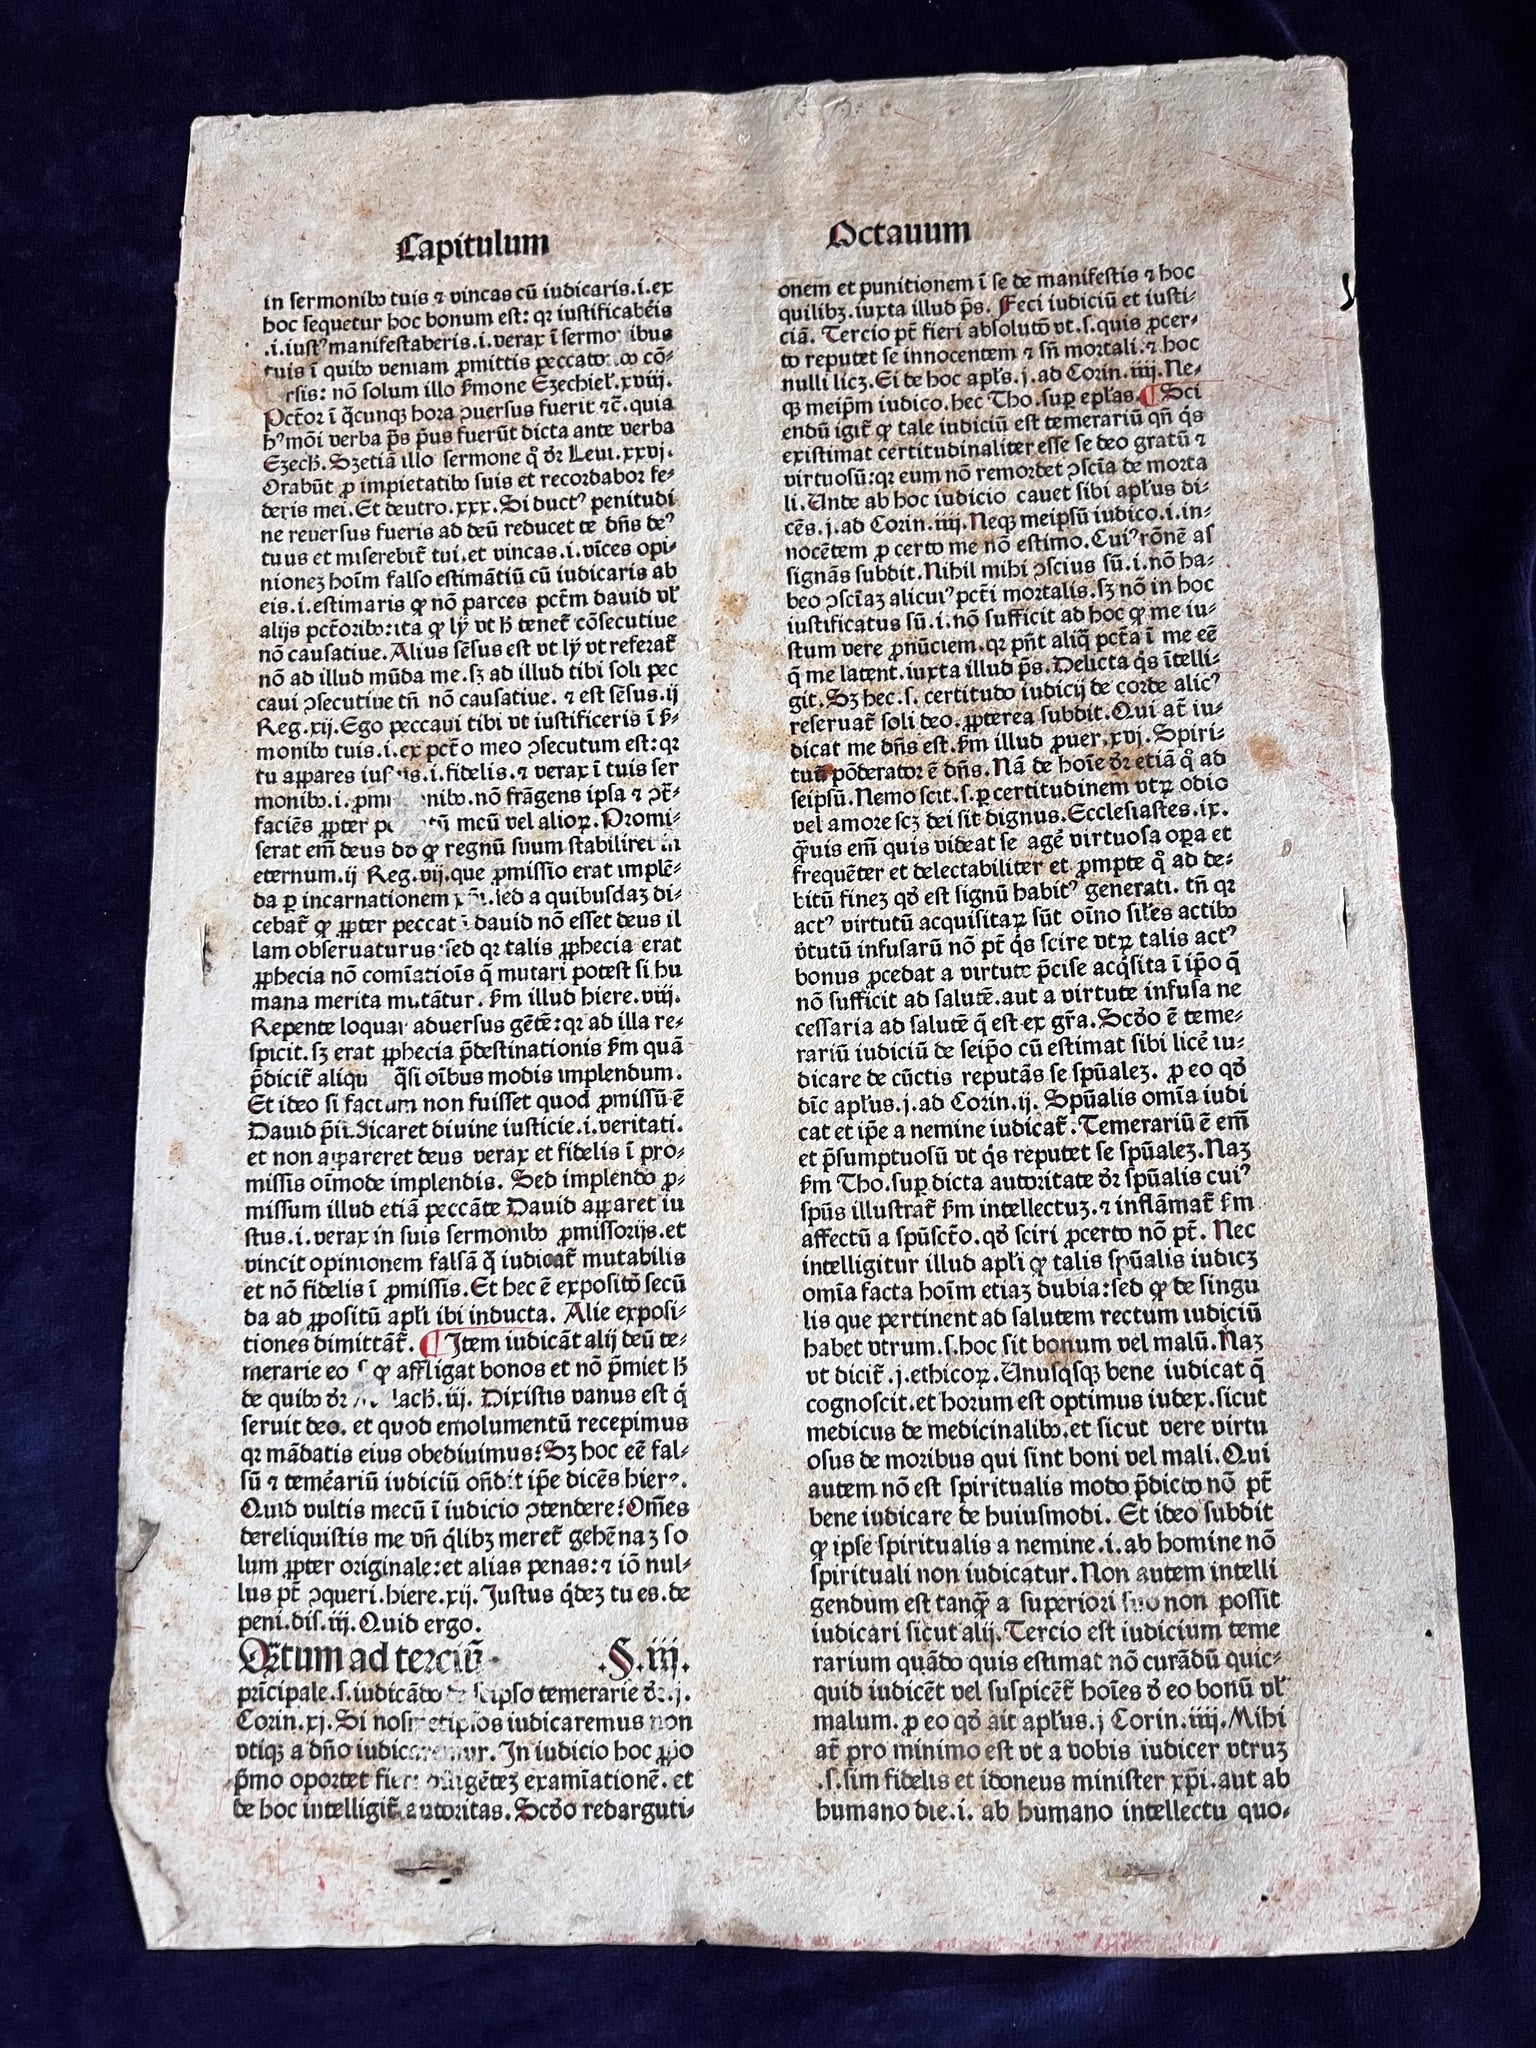 Capitulum
in sermonibꝰ tuis ⁊ vincas cū iudicaris.i.ex
hoc sequetur hoc bonum est: qꝛ iustificabēis
.i.iustꝰ manifestaberis.i.verax ī sermo ibus
tuis ī quibꝰ veniam ꝓmittis peccato cō⸗
rsis: nō solum illo ẜmone Ezechieƚ.xviij.
Pctōr ī q̄cunqꝫ hora ↄuersus fuerit ⁊c̄. quia
hꝰmōi verba p̄s p̄us fuerūt dicta ante verba
Ezech̄. Sꝫ etiā illo sermone q̄ dr̄ Leui.xxvj.
Orabūt ꝓ impietatibꝰ suis et recordabor fe⸗
deris mei. Et deutro.xxx. Si ductꝰ penitudi
ne reuersus fueris ad deū reducet te dn̄s deꝰ
tuus et miserebit᷑ tui.et vincas.i.vīces opi⸗
nionez hoīm falso estimātiū cū iudicaris ab
eis.i.estimaris ꝙ nō parces pctm̄ dauid vƚ
alijs pctōribꝰ: ita ꝙ lẏ vt h̄ tenet᷑ cōsecutiue
nō causatiue. Alius sēsus est vt lẏ vt referat᷑
nō ad illud mūda me. sꝫ ad illud tibi soli pec
caui ↄsecutiue tn̄ nō causatiue. ⁊ est sēsus.ij
Reg.xij. Ego peccaui tibi vt iustificeris ī ẜ⸗
monibꝰ tuis.i.ex pctō meo ↄsecutum est: qꝛ
tu appares iu .i.fidelis.⁊ verax ī tuis ser
monibꝰ.i. ꝓmi nibꝰ.nō frāgens ipsa ⁊ ↄt̄⸗
faciēs ꝓpter pc tū meū vel alioꝝ. Promi⸗
serat em̄ deus dd̄ ꝙ regnū suum stabiliret in
eternum.ij Reg.vij.que ꝓmissio erat implē⸗
da ꝑ incarnationem xp̄i.sed a quibusdaz di⸗
cebat᷑ ꝙ ꝓpter peccat dauid nō esset deus il
lam obseruaturus·sed qꝛ talis ꝓphecia erat
ꝓphecia nō comīatiōis q̄ mutari potest si hu
mana merita mutātur. ẜm illud hiere.viij.
Repente loquar aduersus gētē: qꝛ ad illa re⸗
spicit. sꝫ erat ꝓphecia p̄destinationis ẜm quā
p̄dicit᷑ aliqu q̄si oībus modis implendum.
Et ideo si factum non fuisset quod ꝓmissū ē
Dauid p̄iudicaret diuine iusticie.i.veritati.
et non appareret deus verax et fidelis ī pro⸗
missis oīmode implendis. Sed implendo ꝓ⸗
missum illud etiā peccāte Dauid apparet iu
stus.i.verax in suis sermonibꝰ ꝓmissorijs.et
vincit opinionem falsā q̄ iudicat᷑ mutabilis
et nō fidelis ī ꝓmissis. Et hec ē expositō secū
da ad ꝓpositū apƚi ibi inducta. Alie exposi⸗
tiones dimittāt᷑. ¶ Item iudicāt alij deū te⸗
merarie eo ꝙ affligat bonos et nō p̄miet h̄
de quibꝰ dr̄ lach̄. iij. Dixistis vanus est q̄
seruit deo. et quod emolumentū recepimus
qꝛ mādatis eius obediuimus: Sꝫ hoc eē fal⸗
sū ⁊ temēariū iudiciū on̄dit ip̄e dicēs hierꝰ.
Quid vultis mecū ī iudicio ↄtendere: Om̄es
dereliquistis me vn̄ q̄libꝫ meret᷑ gehēnaꝫ so
lum ꝓpter originale: et alias penas: ⁊ iō nul⸗
lus pt̄ ↄqueri.hiere.xij. Justus q̄dez tu es.de
peni.dis.iij. Quid ergo.
Qꝛtum ad terciū .§.iij.
prīcipale.s.iudicādo de seipso temerarie dr̄.j.
Corin.xj. Si nosmetip̄os iudicaremus non
vtiqꝫ a dn̄o iudicaremur. In iudicio hoc ꝓpo
p̄mo oportet fieri diligētez examīationē. et
de hoc intelligit᷑ autoritas. Scd̄o redarguti⸗
Octauum
onem et punitionem ī se de manifestis ⁊ hoc
quilibꝫ.iuxta illud p̄s. Feci iudiciū et iusti⸗
ciā. Tercio pt̄ fieri absolutō vt.s.quis ꝓcer⸗
to reputet se innocentem ⁊ sn̄ mortali.⁊ hoc
nulli licꝫ. Et de hoc apƚs.j.ad Corin.iiij. Ne⸗
qꝫ meip̄m iudico. hec Tho.suꝑ epƚas. ¶ Sci
endū igit᷑ ꝙ tale iudiciū est temerariū qn̄ q̄s
existimat certitudinaliter esse se deo gratū ⁊
virtuosū: qꝛ eum nō remordet ↄscīa de morta
li. Unde ab hoc iudicio cauet sibi apƚus di⸗
cēs.j.ad Corin.iiij. Neqꝫ meip̄sū iudico.i.in⸗
nocētem ꝓ certo me nō estimo. Cuiꝰ rōnē as
signās subdit. Nihil mihi ↄscius sū.i.nō ha⸗
beo ↄscīaꝫ alicuiꝰ pctī mortalis. sꝫ nō in hoc
iustificatus sū.i.nō sufficit ad hoc ꝙ me iu⸗
stum vere ꝓnūciem. qꝛ pn̄t aliq̄ pctā ī me eē
q̄ me latent.iuxta illud p̄s. Delicta q̄s ītelli⸗
git. Sꝫ hec.s.certitudo iudicij de corde alicꝰ
reseruat᷑ soli deo. ꝓpterea subdit. Qui at̄ iu⸗
dicat me dn̄s est. ẜm illud ꝓuer.xvj. Spiri⸗
tuū pōderator ē dn̄s. Nā de hoīe dr̄ etiā q̄ ad
seipsū. Nemo scit.s.ꝑ certitudinem vtꝝ odio
vel amore scꝫ dei sit dignus. Ecclesiastes.ix.
q̄uis em̄ quis videat se agē virtuosa oꝑa et
frequēter et delectabiliter et ꝓmpte q̄ ad de⸗
bitū finez qd̄ est signū habitꝰ generati. tn̄ qꝛ
actꝰ virtutū acquisitaꝝ sūt oīno siƚes actibꝰ
v̄tutū infusarū nō pt̄ q̄s scire vtꝝ talis actꝰ
bonus ꝓcedat a virtute p̄cise acq̄sita ī ip̄o q̄
nō sufficit ad salutē.aut a virtute infusa ne
cessaria ad salutē q̄ est ex gr̄a. Scd̄o ē teme⸗
rariū iudiciū de seip̄o cū estimat sibi licē iu⸗
dicare de cūctis reputās se sp̄ualeꝫ. ꝓ eo qd̄
dīc apƚus.j.ad Corin.ij. Sp̄ualis omīa iudi
cat et ip̄e a nemine iudicat᷑. Temerariū ē em̄
et p̄sumptuosū vt q̄s reputet se sp̄ualeꝫ. Naꝫ
ẜm Tho.suꝑ dicta autoritate dr̄ sp̄ualis cuiꝰ
sp̄us illustrat᷑ ẜm intellectuꝫ.⁊ inflāmat᷑ ẜm
affectū a sp̄uscto. qd̄ sciri ꝓcerto nō pt̄. Nec
intelligitur illud apƚi ꝙ talis sp̄ualis iudicꝫ
omīa facta hoīm etiaꝫ dubia: sed ꝙ de singu
lis que pertinent ad salutem rectum iudiciū
habet vtrum.s.hoc sit bonum vel malū. Naꝫ
vt dicit᷑.j.ethicoꝝ. Unusqsqꝫ bene iudicat q̄
cognoscit.et horum est optimus iudex.sicut
medicus de medicinalibꝰ.et sicut vere virtu
osus de moribus qui sint boni vel mali. Qui
autem nō est spiritualis modo p̄dicto nō pt̄
bene iudicare de huiusmodi. Et ideo subdit
ꝙ ipse spiritualis a nemine.i.ab homine nō
spirituali non iudicatur. Non autem intelli
gendum est tanqꝫ a superiori suo non possit
iudicari sicut alij. Tercio est iudicium teme
rarium quādo quis estimat nō curādū quic⸗
quid iudicēt vel suspicēt᷑ hoīes d̄ eo bonū vƚ
malum. ꝓ eo qd̄ ait apƚus.j Corin.iiij. Mihi
at̄ pro minimo est vt a vobis iudicer vtruꝫ
.s.sim fidelis et idoneus minister xp̄i.aut ab
humano die.i. ab humano intellectu quo⸗